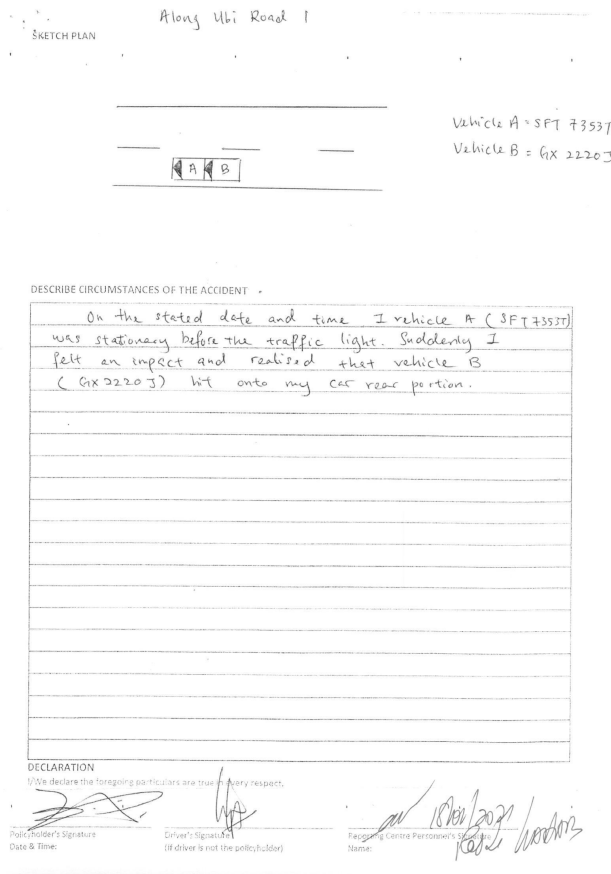 Along Ubi Road 1
SKETCH PLAN
Vehicle A = SFT 7353T
Vehicle B = GX 2220J
A B
DESCRIBE CIRCUMSTANCES OF THE ACCIDENT
On the stated date and time I vehicle A (SFT7353T)
was stationary before the traffic light. Suddenly I
felt an impact and realised that vehicle B
(GX2220J) hit onto my car rear portion.
DECLARATION
I/We declare the foregoing particulars are true in every respect.
Policyholder's Signature
Date & Time:
Driver's Signature
(if driver is not the policyholder)
Reporting Centre Personnel's Signature
Name: